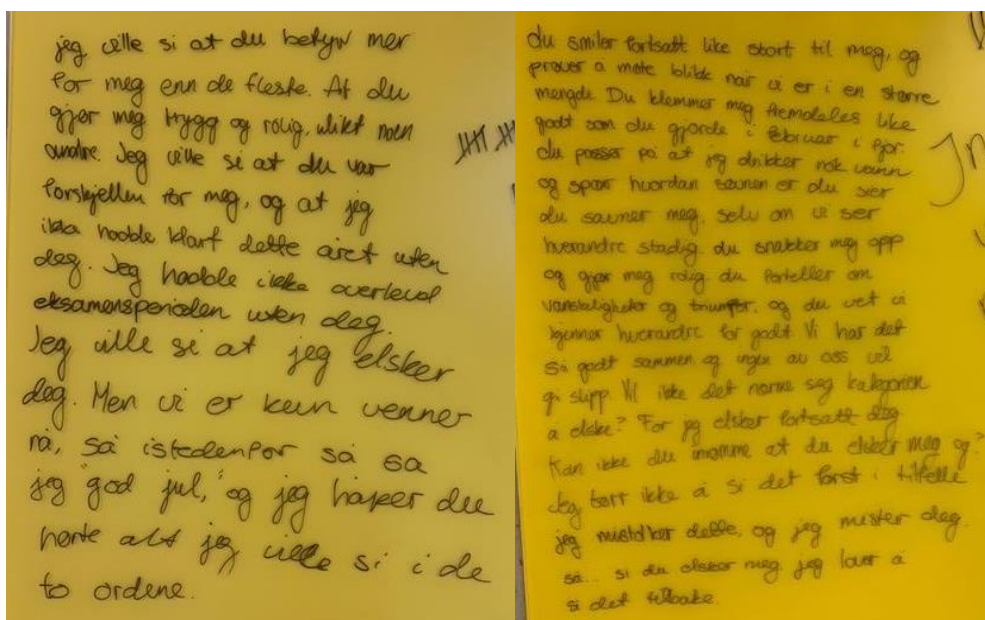 jeg ville si at du betyr mer
for meg enn de fleste. At du
gjør meg trygg og rolig, ulikt noen
andre. Jeg ville si at du var
forskjellen for meg, og at jeg
ikke hadde klart dette året uten
deg. Jeg hadde ikke overlevd
eksamensperioden uten deg.
Jeg ville si at jeg elsker
deg. Men vi er kun venner
nå, så istedenfor så sa
jeg "god jul," og jeg håper du
hørte alt jeg ville si i de
to ordene.
du smiler fortsatt like stort til meg, og
prøver å møte blikk når vi er i en større
mengde. Du klemmer meg fremdeles like
godt som du gjorde i februar i fjor.
du passer på at jeg drikker nok vann
og spør hvordan søvnen er du sier
du savner meg, selv om vi ser
hverandre stadig. du snakker meg opp
og gjør meg rolig. du forteller om
vanskeligheter og triumfer, og du vet vi
kjenner hverandre for godt. Vi har det
så godt sammen og ingen av oss vil
gi slipp. Vil ikke det nærme seg kategorien
å elske? For jeg elsker fortsatt deg
Kan ikke du innrømme at du elsker meg og?
Jeg tørr ikke å si det først i tilfelle
jeg mistolker dette, og jeg mister deg.
så... si du elsker meg. jeg lover å
si det tilbake.